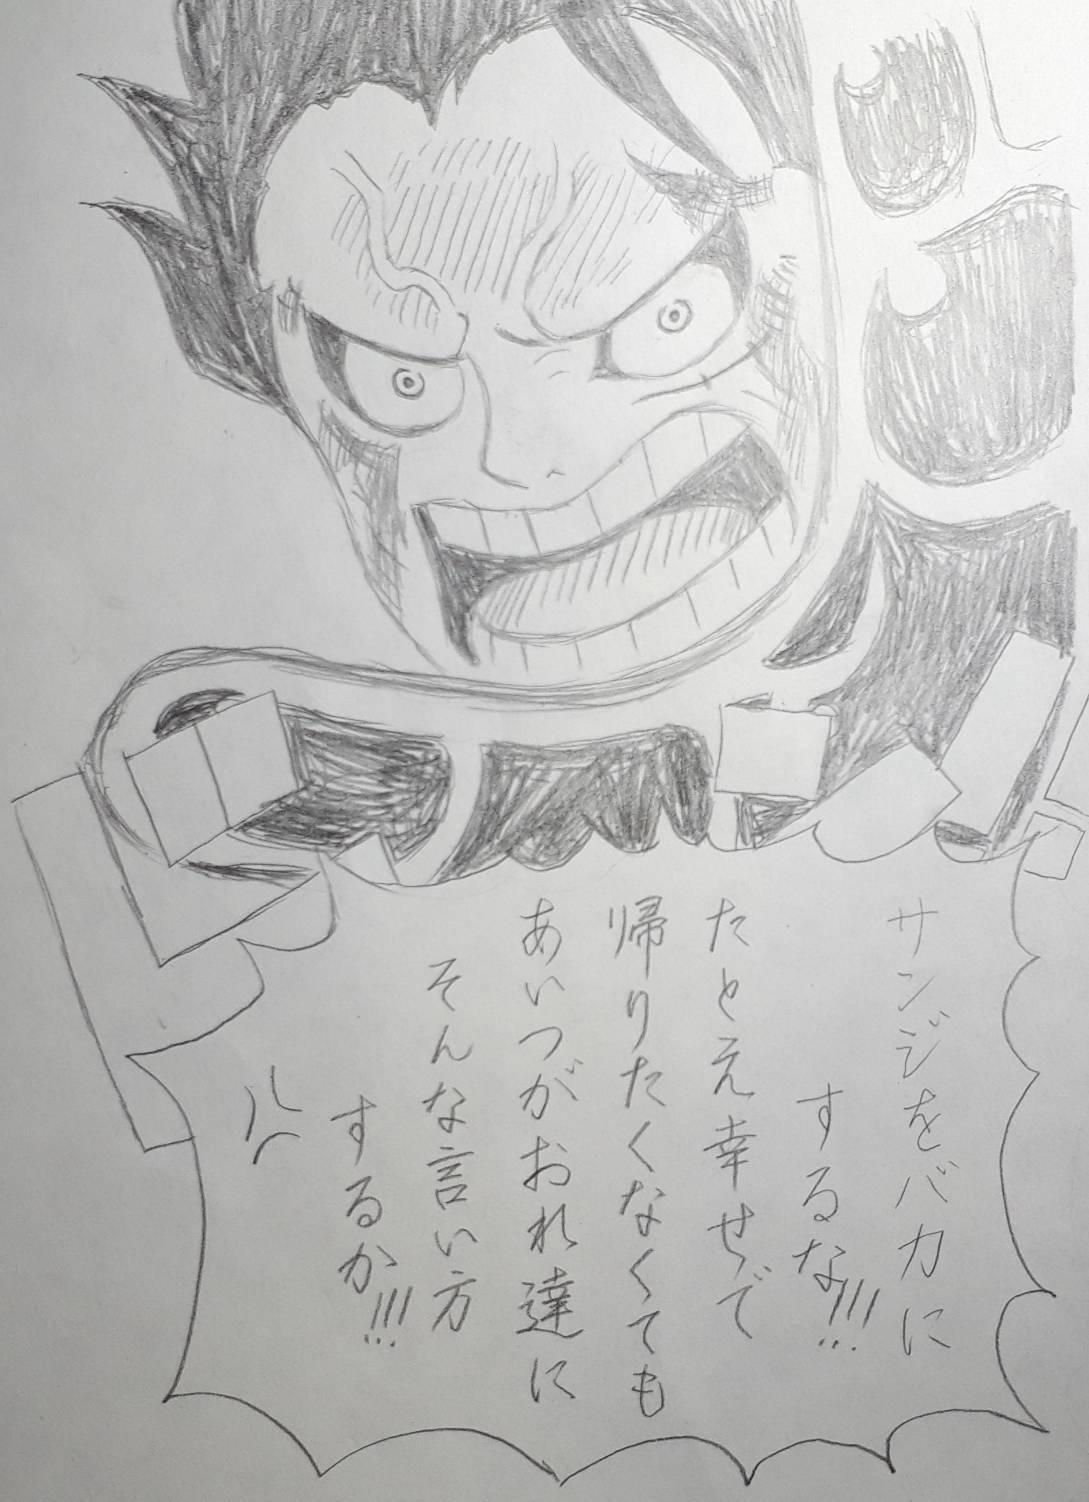 サンジをバカに
するな!!!
たとえ幸せで
帰りたくなくても
あいつがおれ達に
そんな言い方
するか!!!